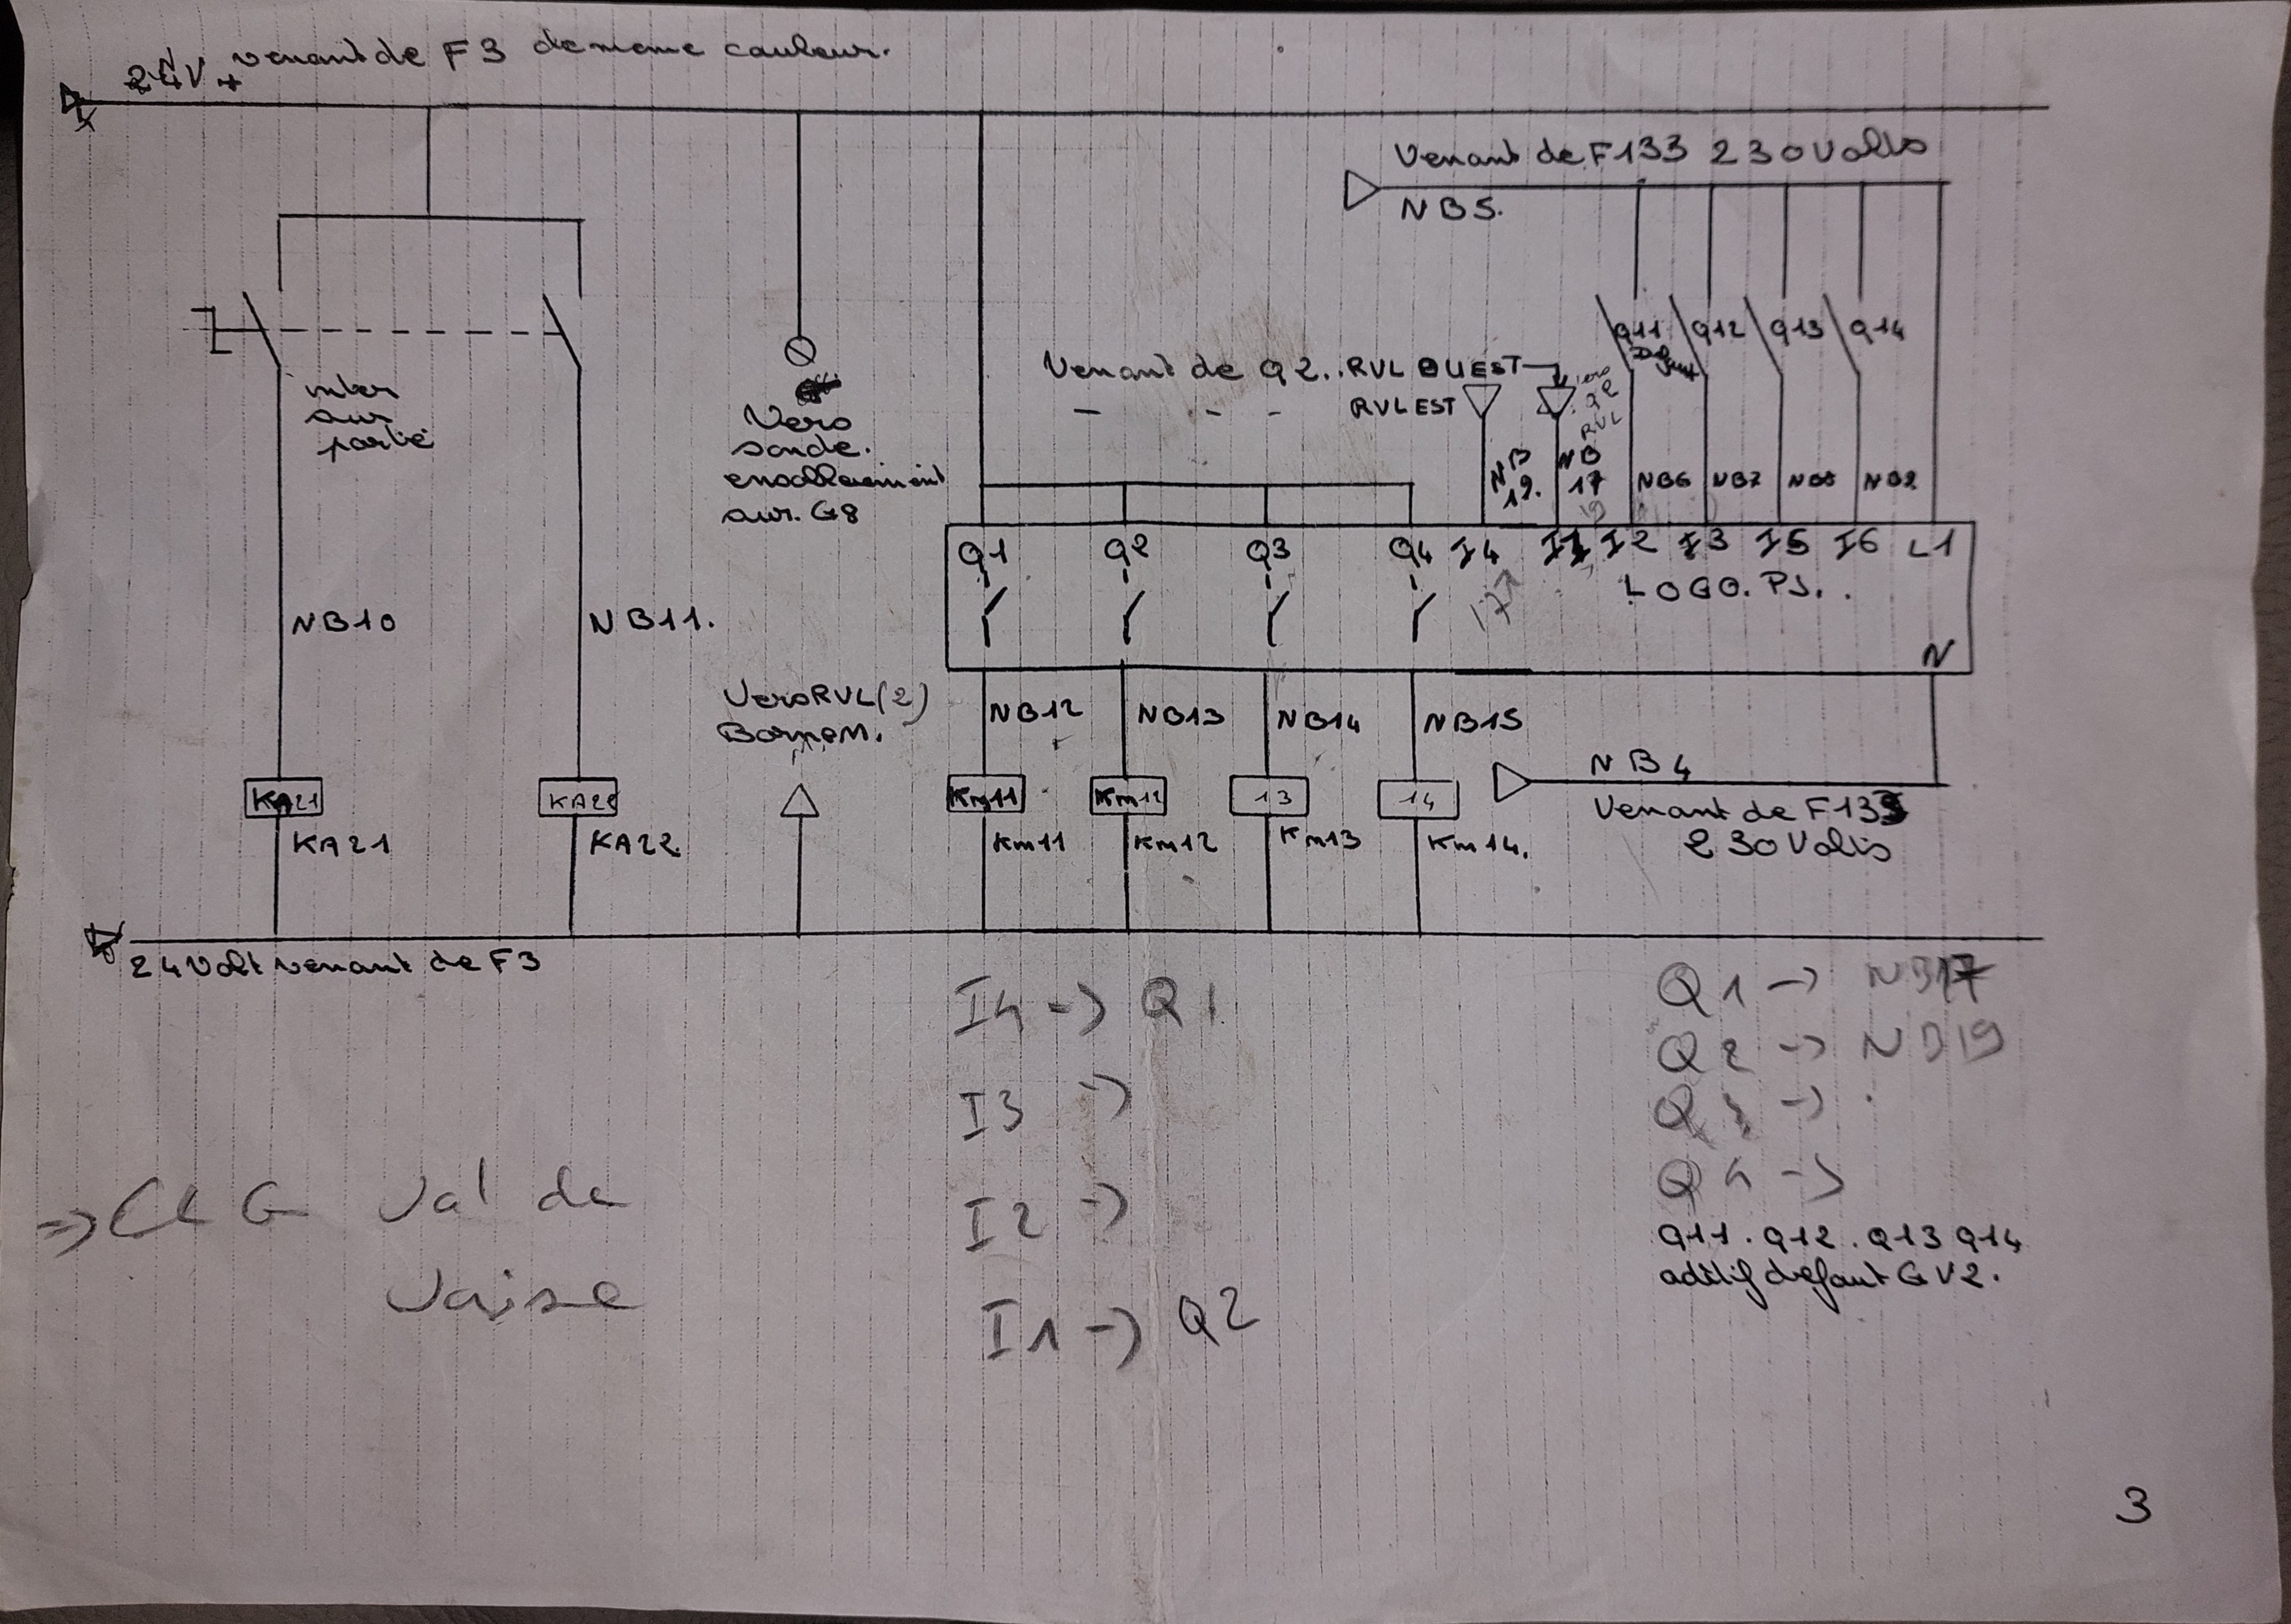 24V + venant de F3 de meme couleur.
Venant de F133 230 Volts
NB5.
Q11 Q12 Q13 Q14
Venant de Q2.. RVL OUEST
- - - RVL EST
inter
sur
porte
Vers
sonde.
sur. G8
NB 19. NB 17 NB6 NB7 NB8 NB9
Q1 Q2 Q3 Q4 I4 I1 I2 I3 I5 I6 L1
LOGO. PS. .
N
NB10 NB11.
Vers RVL (2)
Borne M.
NB12 NB13 NB14 NB15
NB4
KA21 KA22 Km11 Km12 13 14
Venant de F133
230 Volts
KA21 KA22 Km11 Km12 Km13 Km14.
24 Volt venant de F3
I4 -> Q1
I3 ->
I2 ->
I1 -> Q2
Q1 -> NB17
Q2 -> NB19
Q3 ->
Q4 ->
Q11 . Q12 . Q13 Q14
aditif defaut GV2.
=> CLG Val de
Vaise
3